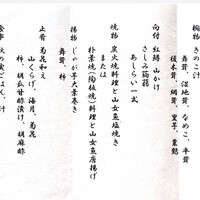 椀物 きのこ汁
舞茸、湿地茸、なめこ、平茸
榎木茸、絹茸、里子、葉葱
向付 紅鱒 山かけ
さしみ蒟蒻
あしらい一式
焼物 炭火焼料理と山女魚塩焼き
または
朴葉焼(陶板焼)料理と山女魚唐揚げ
揚物 じゃが芋大葉巻き
舞茸、柿
止肴 菊花和え
山くらげ、海月、菊花
柿、胡瓜甘酢漬け、胡麻酢